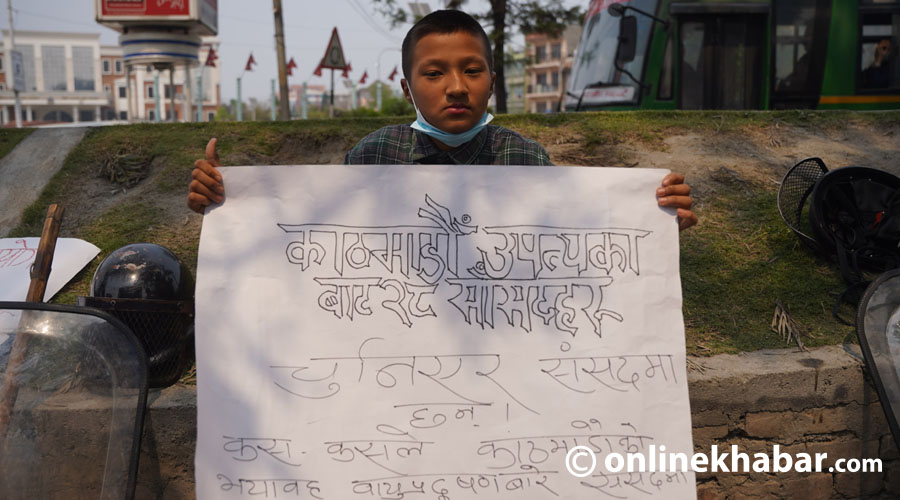 काठमाडौं उपत्यका
बाट १८ सांसदहरू
चुनिएर संसदमा
छन् ।
कस-कसले काठमाडौंको
भयावह वायुप्रदुषणबारे संसदमा
© onlinekhabar.com